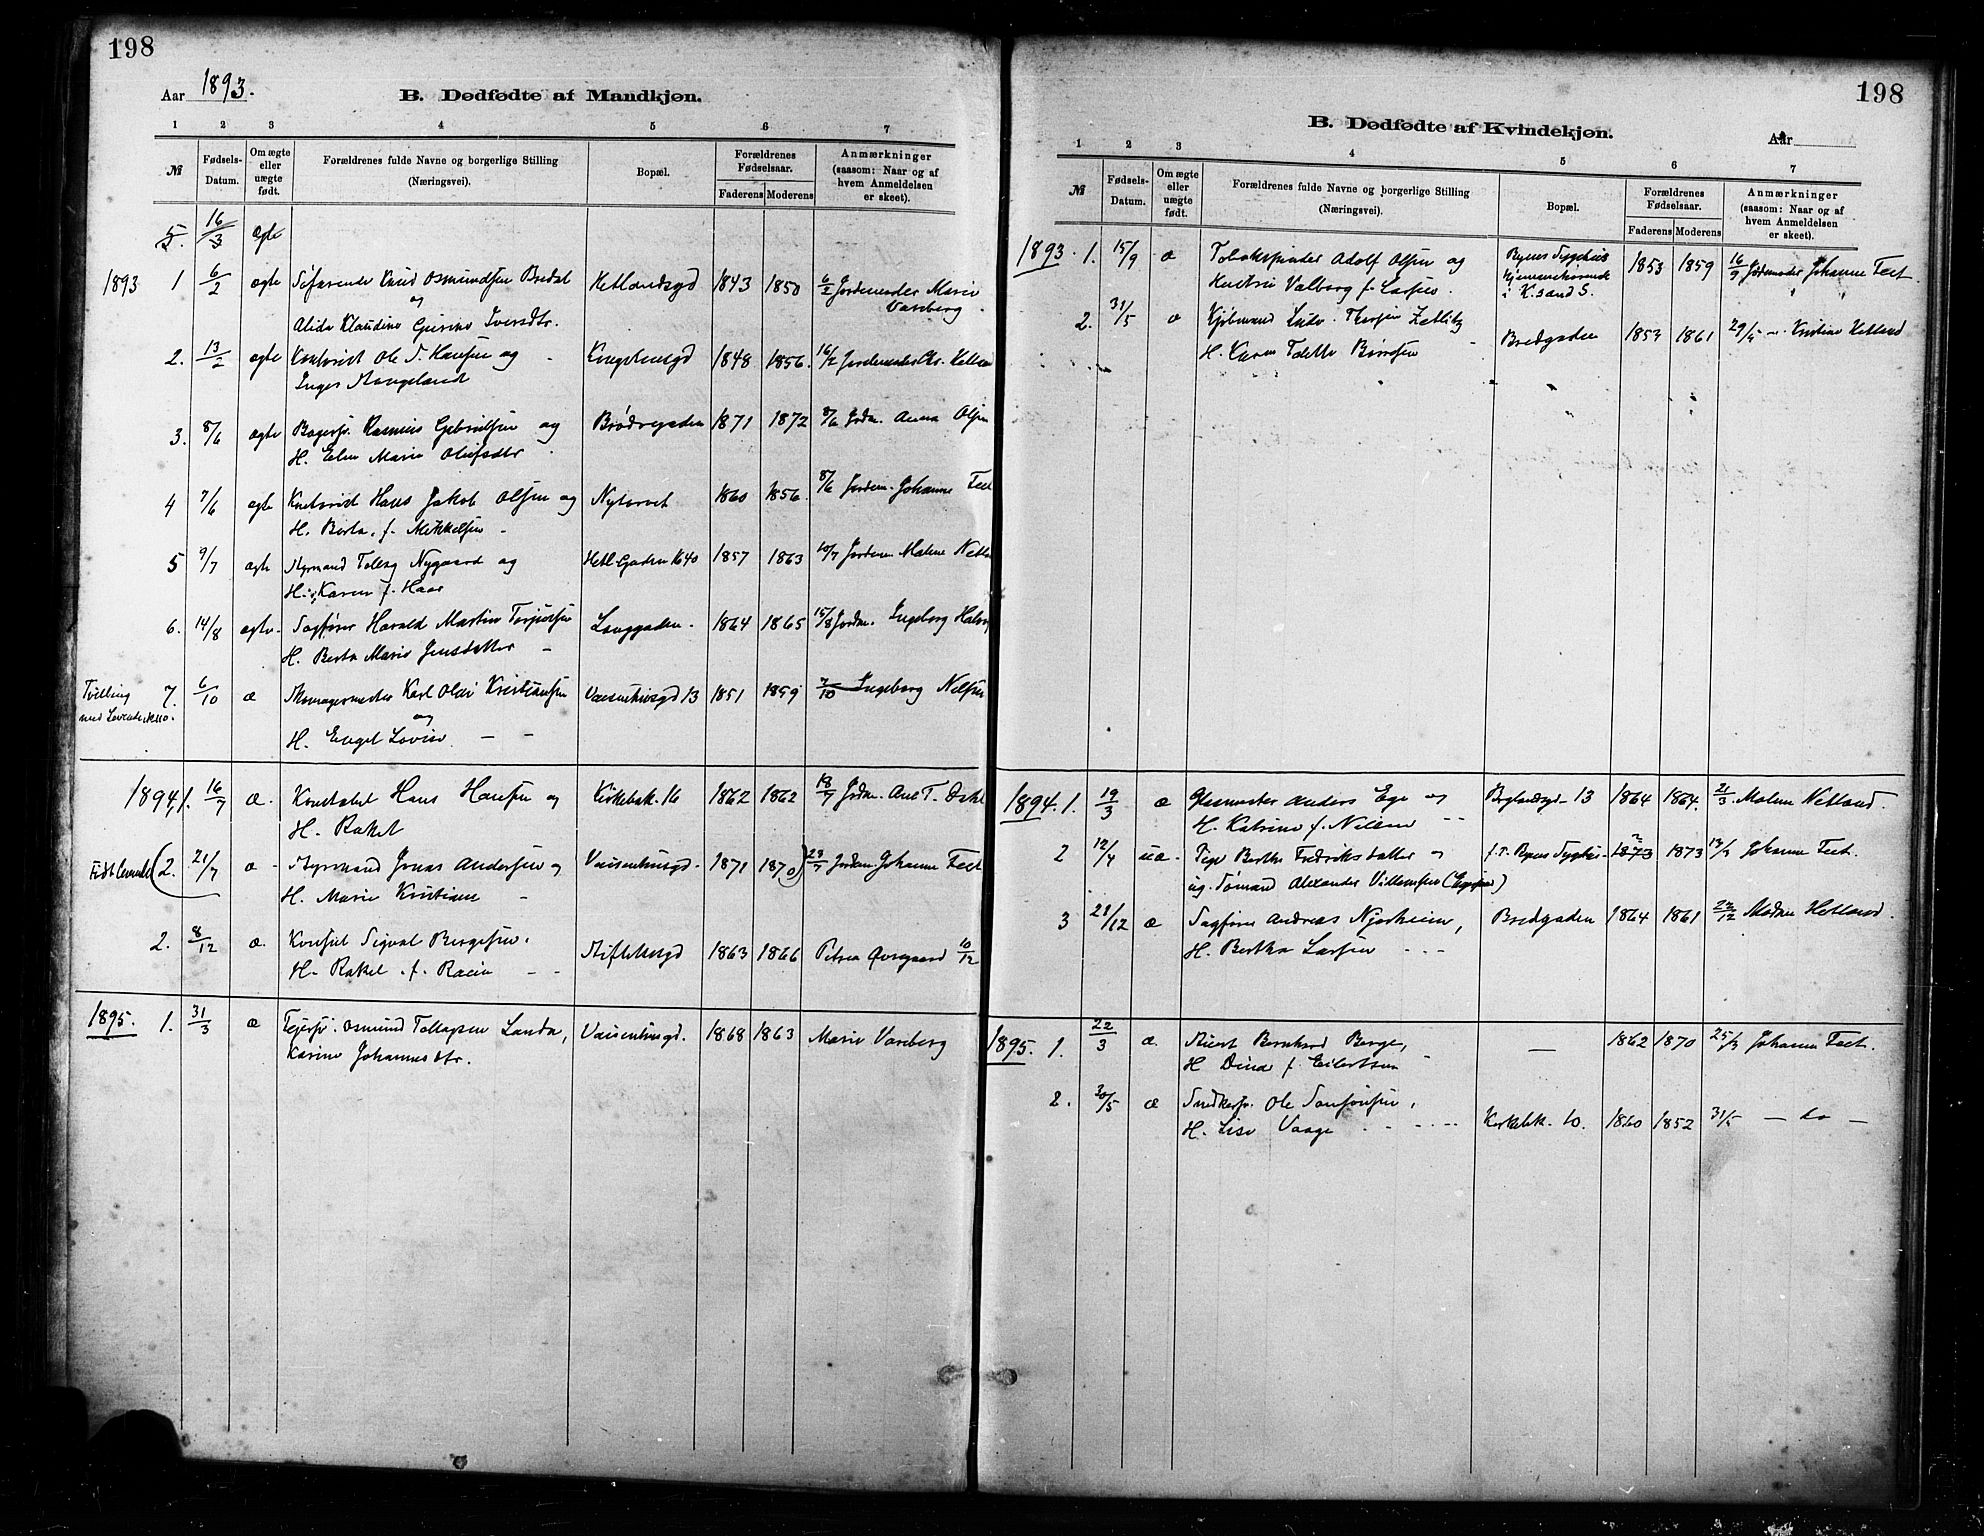 198
Aar 1893.
B. Dødfødte af Mandkjøn.
1 2 3 4 5 6 7
№
Fødsels-
Datum.
Om ægte
eller
uægte
født.
Forældrenes fulde Navne og borgerlige Stilling
(Næringsvei).
Bopæl.
Forældrenes
Fødselsaar.
Faderens Moderens
Anmærkninger
(saasom: Naar og af
hvem Anmeldelsen
er skeet).
5. 16/3 ægte
1893 1 6/2 ægte Søfarende Knud Osmundsen Bredal Ketlandsgd 1843 1850 6/2 Jordemoder Marie
og Vareberg.
Alida Klaudine Gurine Iversdtr.
2. 13/2 ægte Kontorist Ole S. Hansen og Kongstensgd 1848 1856. 16/2 Jordemoder
Inger
3. 8/6 ægte Bagersv. Rasmus Gabrielsen og 1871 1872 8/6 Jordm. Anna Olsen
H. Elen Marie Olufsdtr.
4 7/6 ægte Kontorist Hans Jakob Olsen og Nytorvet 1860 1856. 8/6 Jordem. Johanne Feet
H. Berta. f. Mikkelsen -
5 9/7 ægte Styrmand Tolleg Nygaard og Hetl. Gaden № 40 1857 1863 10/7 Jordem Malene
H. Karen f. Haar
6. 14/8 ægte. Sagfører Harald Martin Torjusen Langgaden. 1864 1865 15/8 Jordm. Ingeborg
H. Berta Marie Jensdatter -
Tvilling 7. 6/10 æ Karl Olai Kristiansen Vaisenhusgd 13 1851 1859 7/10 Ingeborg Nilsen
med Levende № 110. og
H. Engel Lovise - -
1894 1. 16/7 æ. Konstabel Hans Hansen og Kirkebak. 16 1862 1862 18/7 Jordm. Ane T.
H. Rakel
Født levende (2. 21/7 æ - Styrmand Jonas Andersen og Vaisenhusgd. 1871 1870) 23/7 Jordem. Johanne Feet
H. Marie Kristiane -
2. 8/12 æ. Konsul Sigval Bergesen. 1863 1866 Petrea Ovregaard 10/12
H. Rakel. f. Racin - -
1895. 1. 31/3 æ Tollagsen Landa, Vaisenhusgd. 1868 1863 Marie Vareberg
Karine Johannesdtr.
198
B. Dødfødte af Kvindekjøn.
Aar
1 2 3 4 5 6 7
№
Fødsels-
Datum.
Om ægte
eller
uægte
født.
Forældrenes fulde Navne og borgerlige Stilling
(Næringsvei).
Bopæl.
Forældrenes
Fødselsaar.
Faderens Moderens
Anmærkninger
(saasom: Naar og af
hvem Anmeldelsen
er skeet).
1893. 1. 15/9 æ Tobakspinder Adolf Olsen og Byens Sygehus 1853 1859 16/9 Jordemoder Johanne Feet
Hustru Valborg f. Larsen. Hjemmehørende
i K.sand S.
2. 31/5 æ Kjøbmand Ludv. Thorsen Zetlitz Bredgaden 1853 1861 29/5 - Kristine Hetland
H. Karen Tdette Børresen
1894. 1. 19/3 æ Glasmester Anders Ege og 13 1864 1864. 21/3. Malene Netland.
H. Katrine f. Nilsen
2 12/4 uæ. Pige Berthe Fredriksdatter og f.T. Byens Sygehus 1873 1873 13/4 Johanne Feet.
ug. Sømand Alexander Villumsen
3 21/12 æ Sagfører Andreas Njærheim, Bredgaden 1864 1861 22/12 Madam Hetland.
H. Bertha Larsen - - -
1895. 1. 22/3 æ. Bernhard Berge, — 1862 1870 25/3 Johanne Feet.
H Dina f. Eilertsen
2. 30/5 æ Snedkersv. Ole Samsonsen, Kirkebk. 10. 1860 1852 31/5 - do -
H. Lise Vaage - - - -